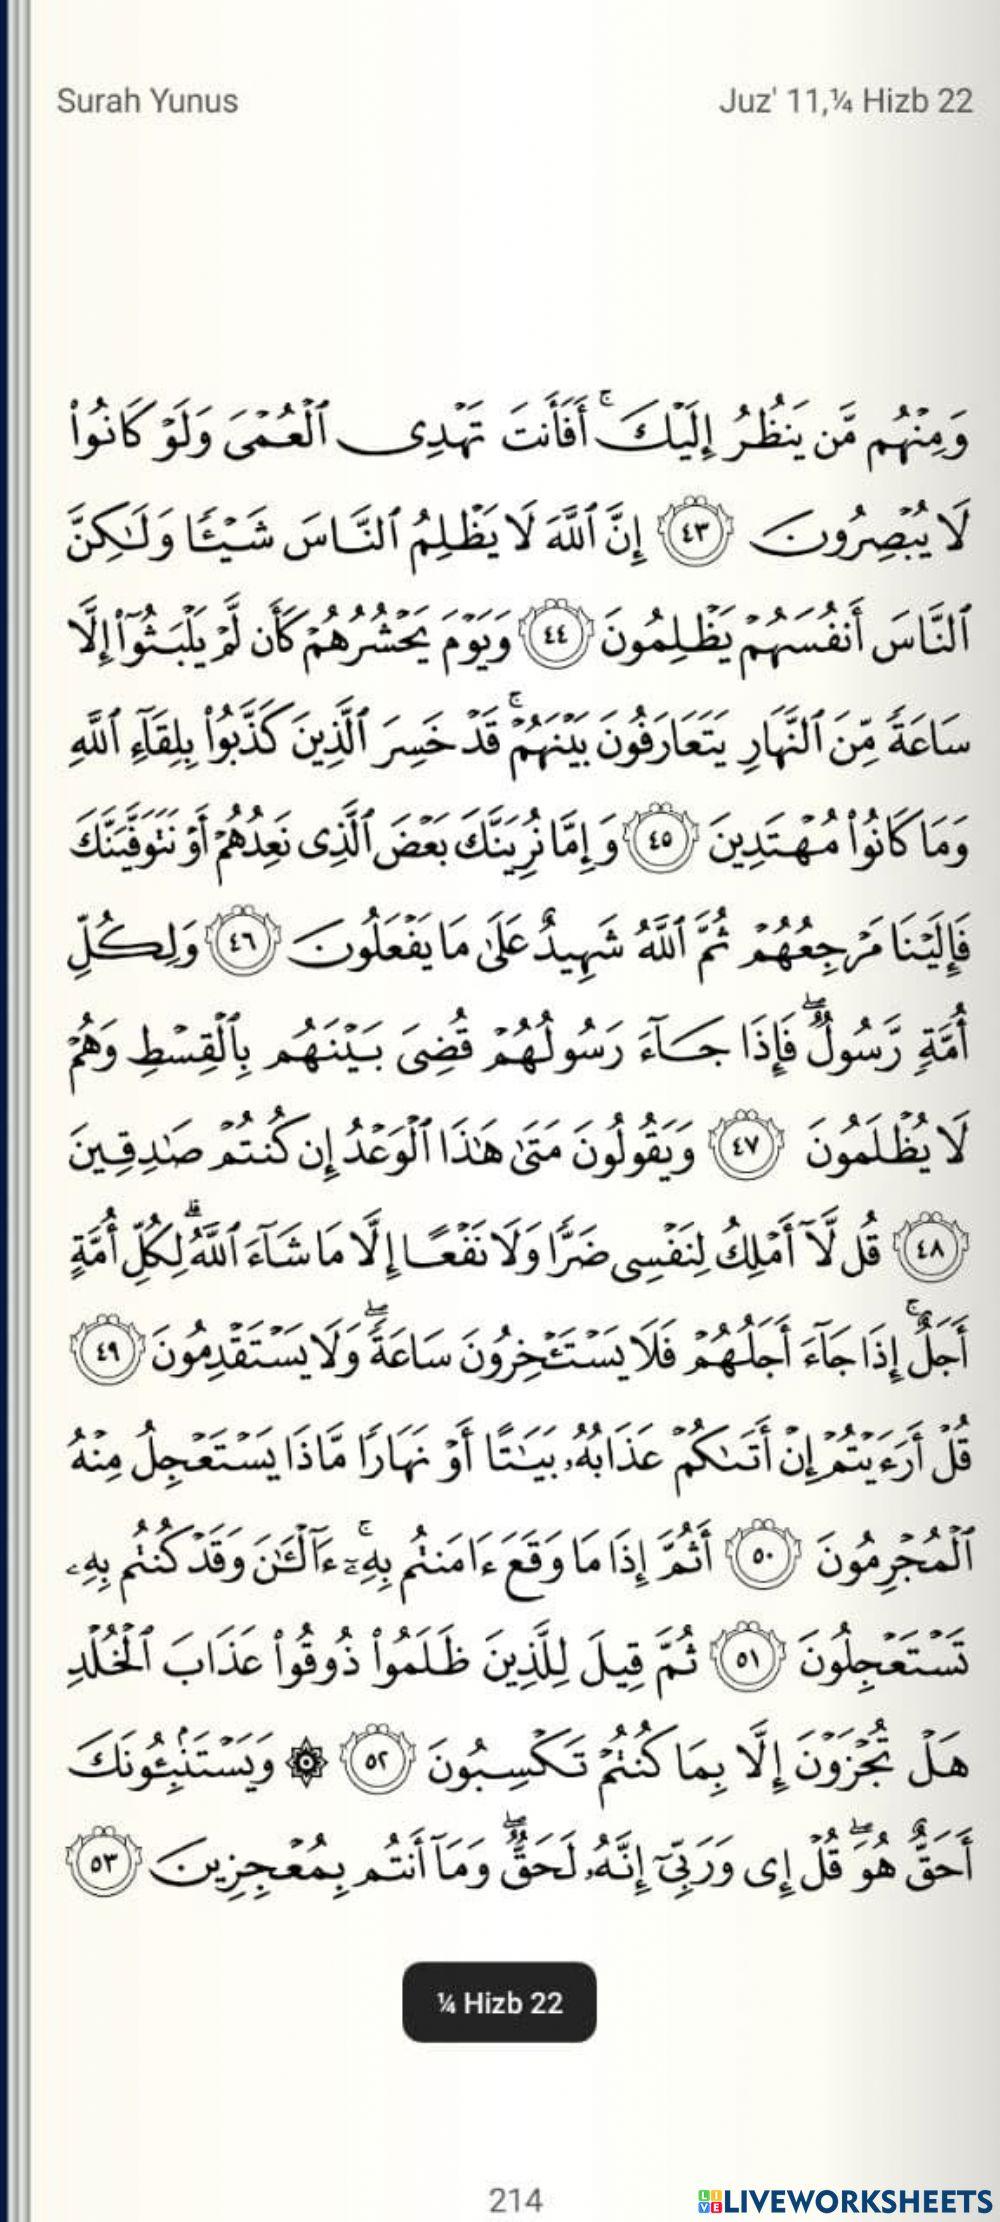 Surah Yunus
Juz' 11,¼ Hizb 22
وَمِنْهُم مَّن يَنظُرُ إِلَيْكَ ۚ أَفَأَنتَ تَهْدِى ٱلْعُمْىَ وَلَوْ كَانُوا۟
لَا يُبْصِرُونَ ٤٣ إِنَّ ٱللَّهَ لَا يَظْلِمُ ٱلنَّاسَ شَيْـًٔا وَلَـٰكِنَّ
ٱلنَّاسَ أَنفُسَهُمْ يَظْلِمُونَ ٤٤ وَيَوْمَ يَحْشُرُهُمْ كَأَن لَّمْ يَلْبَثُوٓا۟ إِلَّا
سَاعَةً مِّنَ ٱلنَّهَارِ يَتَعَارَفُونَ بَيْنَهُمْ ۚ قَدْ خَسِرَ ٱلَّذِينَ كَذَّبُوا۟ بِلِقَآءِ ٱللَّهِ
وَمَا كَانُوا۟ مُهْتَدِينَ ٤٥ وَإِمَّا نُرِيَنَّكَ بَعْضَ ٱلَّذِى نَعِدُهُمْ أَوْ نَتَوَفَّيَنَّكَ
فَإِلَيْنَا مَرْجِعُهُمْ ثُمَّ ٱللَّهُ شَهِيدٌ عَلَىٰ مَا يَفْعَلُونَ ٤٦ وَلِكُلِّ
أُمَّةٍ رَّسُولٌ ۖ فَإِذَا جَآءَ رَسُولُهُمْ قُضِىَ بَيْنَهُم بِٱلْقِسْطِ وَهُمْ
لَا يُظْلَمُونَ ٤٧ وَيَقُولُونَ مَتَىٰ هَـٰذَا ٱلْوَعْدُ إِن كُنتُمْ صَـٰدِقِينَ
٤٨ قُل لَّآ أَمْلِكُ لِنَفْسِى ضَرًّا وَلَا نَفْعًا إِلَّا مَا شَآءَ ٱللَّهُ ۗ لِكُلِّ أُمَّةٍ
أَجَلٌ ۚ إِذَا جَآءَ أَجَلُهُمْ فَلَا يَسْتَـْٔخِرُونَ سَاعَةً ۖ وَلَا يَسْتَقْدِمُونَ ٤٩
قُلْ أَرَءَيْتُمْ إِنْ أَتَىٰكُمْ عَذَابُهُۥ بَيَـٰتًا أَوْ نَهَارًا مَّاذَا يَسْتَعْجِلُ مِنْهُ
ٱلْمُجْرِمُونَ ٥٠ أَثُمَّ إِذَا مَا وَقَعَ ءَامَنتُم بِهِۦٓ ۚ ءَآلْـَٔـٰنَ وَقَدْ كُنتُم بِهِۦ
تَسْتَعْجِلُونَ ٥١ ثُمَّ قِيلَ لِلَّذِينَ ظَلَمُوا۟ ذُوقُوا۟ عَذَابَ ٱلْخُلْدِ
هَلْ تُجْزَوْنَ إِلَّا بِمَا كُنتُمْ تَكْسِبُونَ ٥٢ ۞ وَيَسْتَنۢبِـُٔونَكَ
أَحَقٌّ هُوَ ۖ قُلْ إِى وَرَبِّىٓ إِنَّهُۥ لَحَقٌّ ۖ وَمَآ أَنتُم بِمُعْجِزِينَ ٥٣
¼ Hizb 22
214
LIVEWORKSHEETS